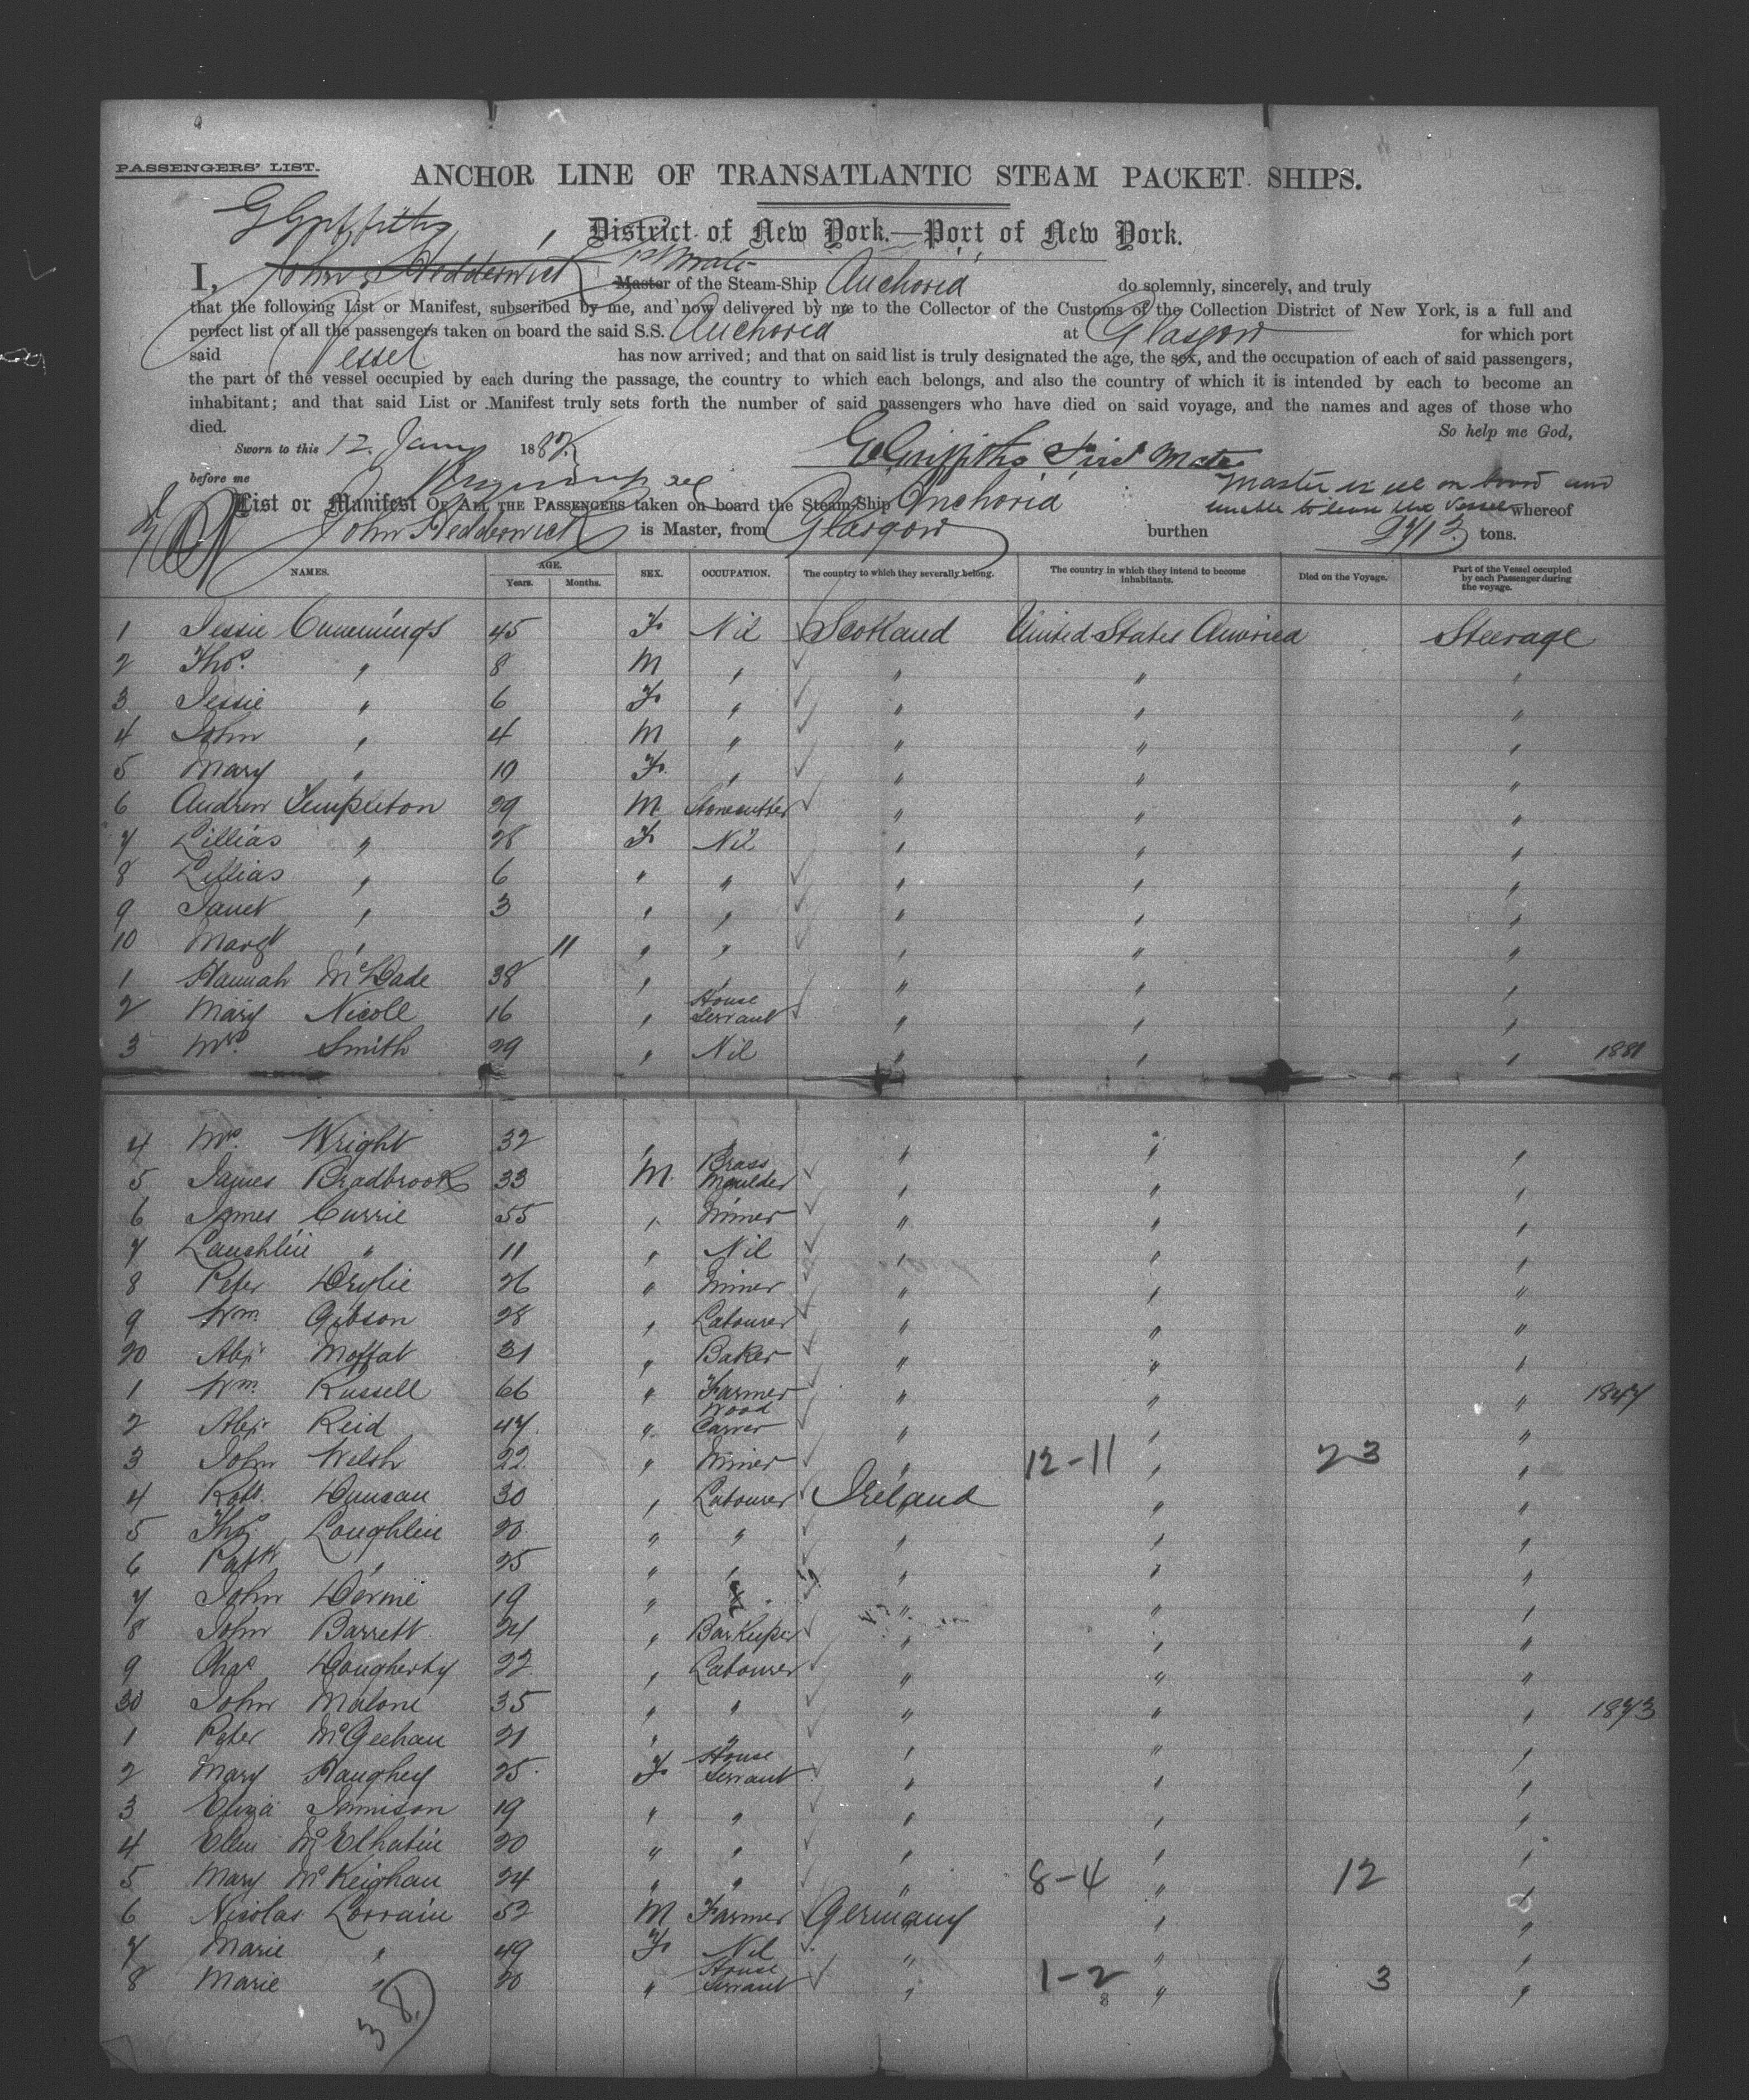 PASSENGERS' LIST.
ANCHOR LINE OF TRANSATLANTIC STEAM PACKET SHIPS.
G Griffiths
District of New York.—Port of New York.
I, John Hedderwick 1st Mate Master of the Steam-Ship Anchoria do solemnly, sincerely, and truly
that the following List or Manifest, subscribed by me, and now delivered by me to the Collector of the Customs of the Collection District of New York, is a full and
perfect list of all the passengers taken on board the said S.S. Anchoria at Glasgow for which port
said Vessel has now arrived; and that on said list is truly designated the age, the sex, and the occupation of each of said passengers,
the part of the vessel occupied by each during the passage, the country to which each belongs, and also the country of which it is intended by each to become an
inhabitant; and that said List or Manifest truly sets forth the number of said passengers who have died on said voyage, and the names and ages of those who
died. So help me God,
Sworn to this 12. Jany 188
G Griffiths First Mate
before me
Master is ill on board and
List or Manifest OF ALL THE PASSENGERS taken on board the Steam-Ship Anchoria
unable to leave the Vessel whereof
John Hedderwick is Master, from Glasgow burthen tons.
NAMES. AGE. Years. Months. SEX. OCCUPATION. The country to which they severally belong. The country in which they intend to become inhabitants. Died on the Voyage. Part of the Vessel occupied by each Passenger during the voyage.
1 Jessie Cummings 45 F Nil Scotland United States America Steerage
2 Thos. " 8 M " " " "
3 Jessie " 6 F " " " "
4 John " 4 M " " " "
5 Mary " 10 F " " " "
6 Andrew Templeton 29 M Stonecutter " " "
7 Lillias " 28 F Nil " " "
8 Lillias " 6 " " " " "
9 Janet " 3 " " " " "
10 Margt " 11 " " " " "
1 Hannah McDade 38 " " " " "
2 Mary Nicoll 16 " House Servant " " "
3 Mrs. Smith 29 " Nil " " " 1881
4 Mrs. Wright 32 " " " " "
5 James Bradbrook 33 M. Brass Moulder " " "
6 James Currie 55 " Miner " " "
7 Lauchlin " 11 " Nil " " "
8 Peter Drylie 26 " Miner " " "
9 Wm. Gibson 28 " Labourer " " "
20 Alexr Moffat 31 " Baker " " "
1 Wm. Russell 66 " Farmer " " " 1847
2 Alexr Reid 47 " Wood Carver " " "
3 John Welsh 22 " Miner " 12-11 " 23 "
4 Robt. Duncan 30 " Labourer Ireland " "
5 Thos Loughlin 20 " " " " "
6 Patk " 25 " " " " "
7 John 19 " " " "
8 John Barrett 24 " Barkeeper " " "
9 Chas Dougherty 22 " Labourer " " "
30 John Malone 35 " " " " " 1873
1 Peter McGeehan 21 " " " " "
2 Mary Haughey 25 F House Servant " " "
3 Eliza Jamison 19 " " " " "
4 Ellen McElhatin 20 " " " " "
5 Mary McKeighan 24 " " " 8-4 " 12 "
6 Nicolas Lorrain 52 M Farmer Germany " "
7 Marie " 49 F Nil " " "
8 Marie " 20 " House Servant " 1-2 " 3 "
38